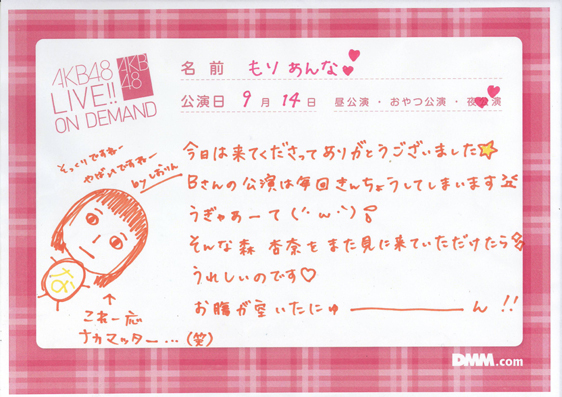 AKB48
LIVE!!
ON DEMAND
AKB
48
名前 もり あんな
公演日 9月14日 昼公演・おやつ公演・夜公演
そっくりですねー
やばいですねー
by しおりん
今日は来てくださってありがとうございました
Bさんの公演は毎回きんちょうしてしまいます
うぎゃあーて(´･ω･`)
そんな森 杏奈をまた見に来ていただけたら
うれしいのです♡
お腹が空いたにゅーーーん!!
これ一応
ナカマッター…(笑)
DMM.com